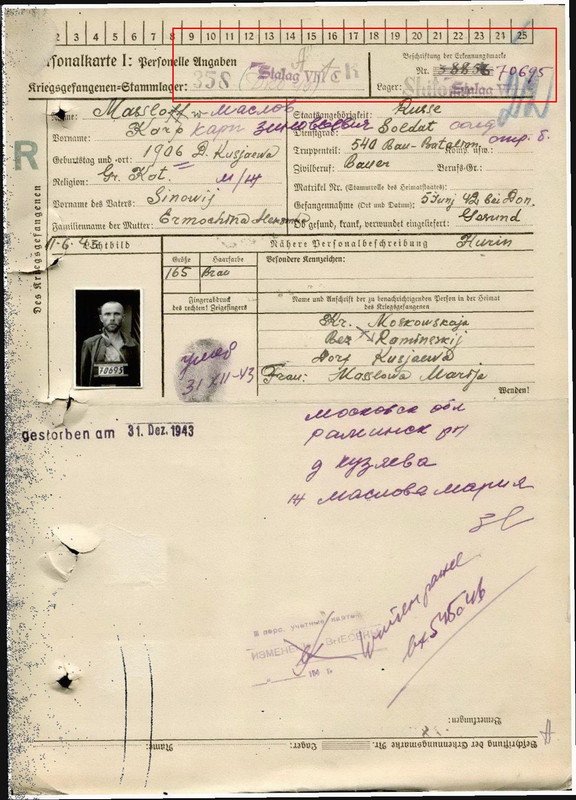 1 2 3 4 5 6 7 8 9 10 11 12 13 14 15 16 17 18 19 20 21 22 23 24 25
sonalkarte I: Personelle Angaben
Beschriftung der Erkennungsmarke
Nr. 70695
Kriegsgefangenen-Stammlager: 358 Stalag VIII C
Lager: Stalag VIII
Name: Massloff Маслов
Staatsangehörigkeit: Russe
Vorname: Karp Карп Зиновьевич
Dienstgrad: Soldat солд
Geburtstag und -ort: 1906 D. Kusjaewa
Truppenteil: 540 Bau-Batallion Komp. usw.:
Religion: Gr. Kot. м/ж
Zivilberuf: Bauer Berufs-Gr.:
Matrikel Nr. (Stammrolle des Heimatstaates):
Vorname des Vaters: Sinowij
Gefangennahme (Ort und Datum): 5 Junj 42 bei Don.
Familienname der Mutter: Ermochina
Ob gesund, krank, verwundet eingeliefert: Gesund
Des Kriegsgefangenen
R
Lichtbild
Nähere Personalbeschreibung
Größe Haarfarbe
Besondere Kennzeichen:
165 Brau
Fingerabdruck
des rechten! Zeigefingers
Name und Anschrift der zu benachrichtigenden Person in der Heimat
des Kriegsgefangenen
Kr. Moskowskaja
Bez Raminskij
Dorf Kusjaewa
Frau: Masslowa Marija
70695
умер
31 XII-43
Wenden!
gestorben am 31. Dez. 1943
Московск обл
Раминск рн
д Кузяева
ж Маслова Мария
ИЗМЕНЕН ВНЕСЕНЫ
Bemerkungen:
Beschriftung der Erkennungsmarke Nr. Lager: Name: